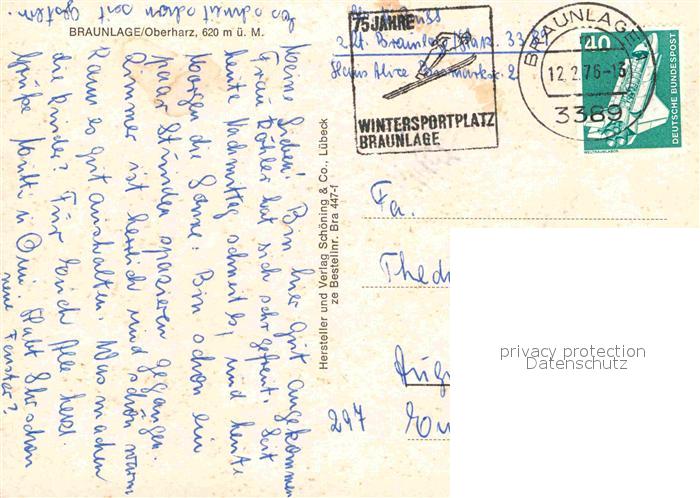 das schneit schon seit gestern.
BRAUNLAGE/Oberharz, 620 m ü. M.
Meine Lieben! Bin hier gut angekommen
Frau Köhler hat sich sehr gefreut. Seit
heute Nachmittag schneit es, und heute
Morgen die Sonne. Bin schon ein
paar Stunden spazieren gegangen.
Zimmer ist herrlich und schön warm
Kann es gut aushalten. Was machen
die Kinder? Für Euch alle herzl.
Grüße Mutti u. Omi. Habt Ihr schon
neue Fenster?
Hersteller und Verlag Schöning & Co., Lübeck
ze Bestellnr. Bra 447-f
z. Zt. Braunlage/Harz 3389
Haus Alice Bismarckstr. 2
75 JAHRE
WINTERSPORTPLATZ
BRAUNLAGE
BRAUNLAGE
12.2.76-13
3389
40
DEUTSCHE BUNDESPOST
WELTRAUMLABOR
Fa.
Thed
297
privacy protection
Datenschutz